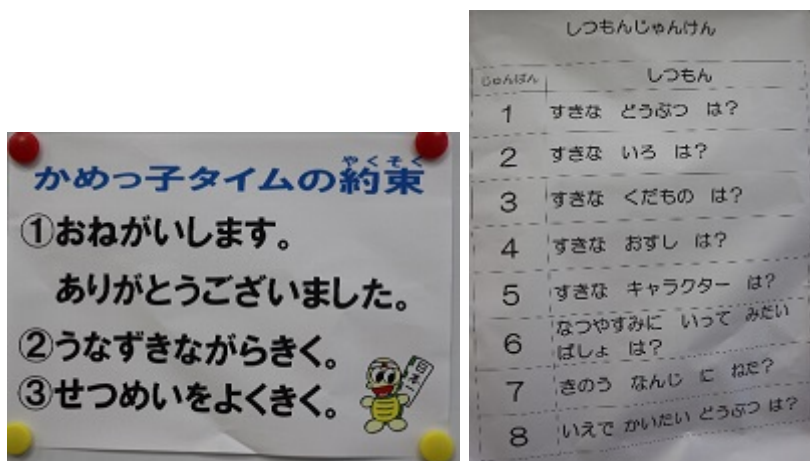 かめっ子タイムの約束
やくそく
①おねがいします。
ありがとうございました。
②うなずきながらきく。
③せつめいをよくきく。
日本一
しつもんじゃんけん
じゅんばん しつもん
1 すきな どうぶつ は?
2 すきな いろ は?
3 すきな くだもの は?
4 すきな おすし は?
5 すきな キャラクター は?
6 なつやすみに いって みたい
ばしょ は?
7 きのう なんじ に ねた?
8 いえで かいたい どうぶつ は?